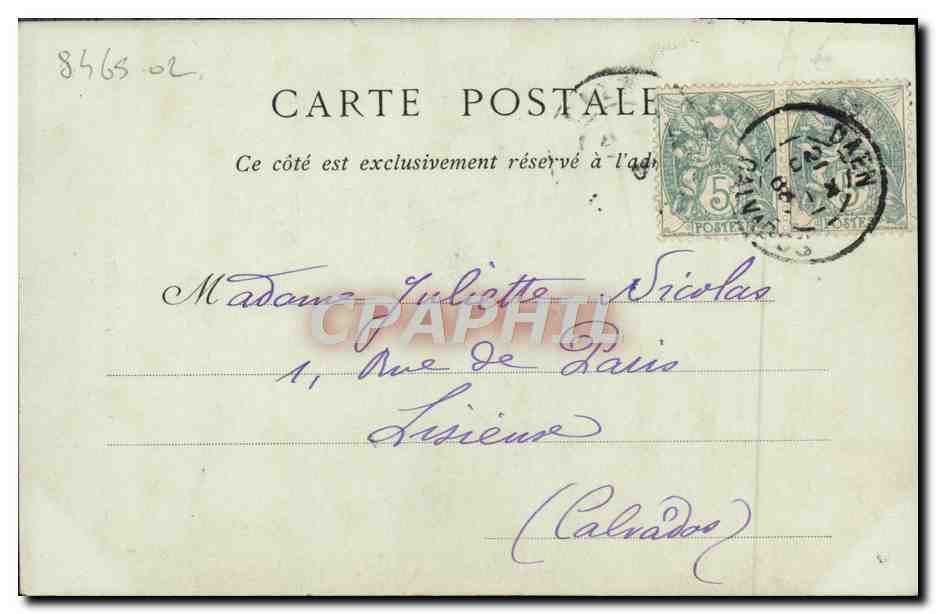 8468-02.
CARTE POSTALE
Ce côté est exclusivement réservé à l'adr
5
POSTES
CAEN
CALVADOS
Madame Juliette Nicolas
CPAPHIL
1, Rue de Paris
Lisieux
(Calvados)